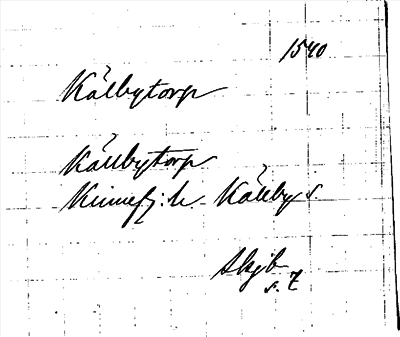 1540
Kålbytorp
Källbytorp
Kinnefj: h. Källby s
Skjb
s. 7